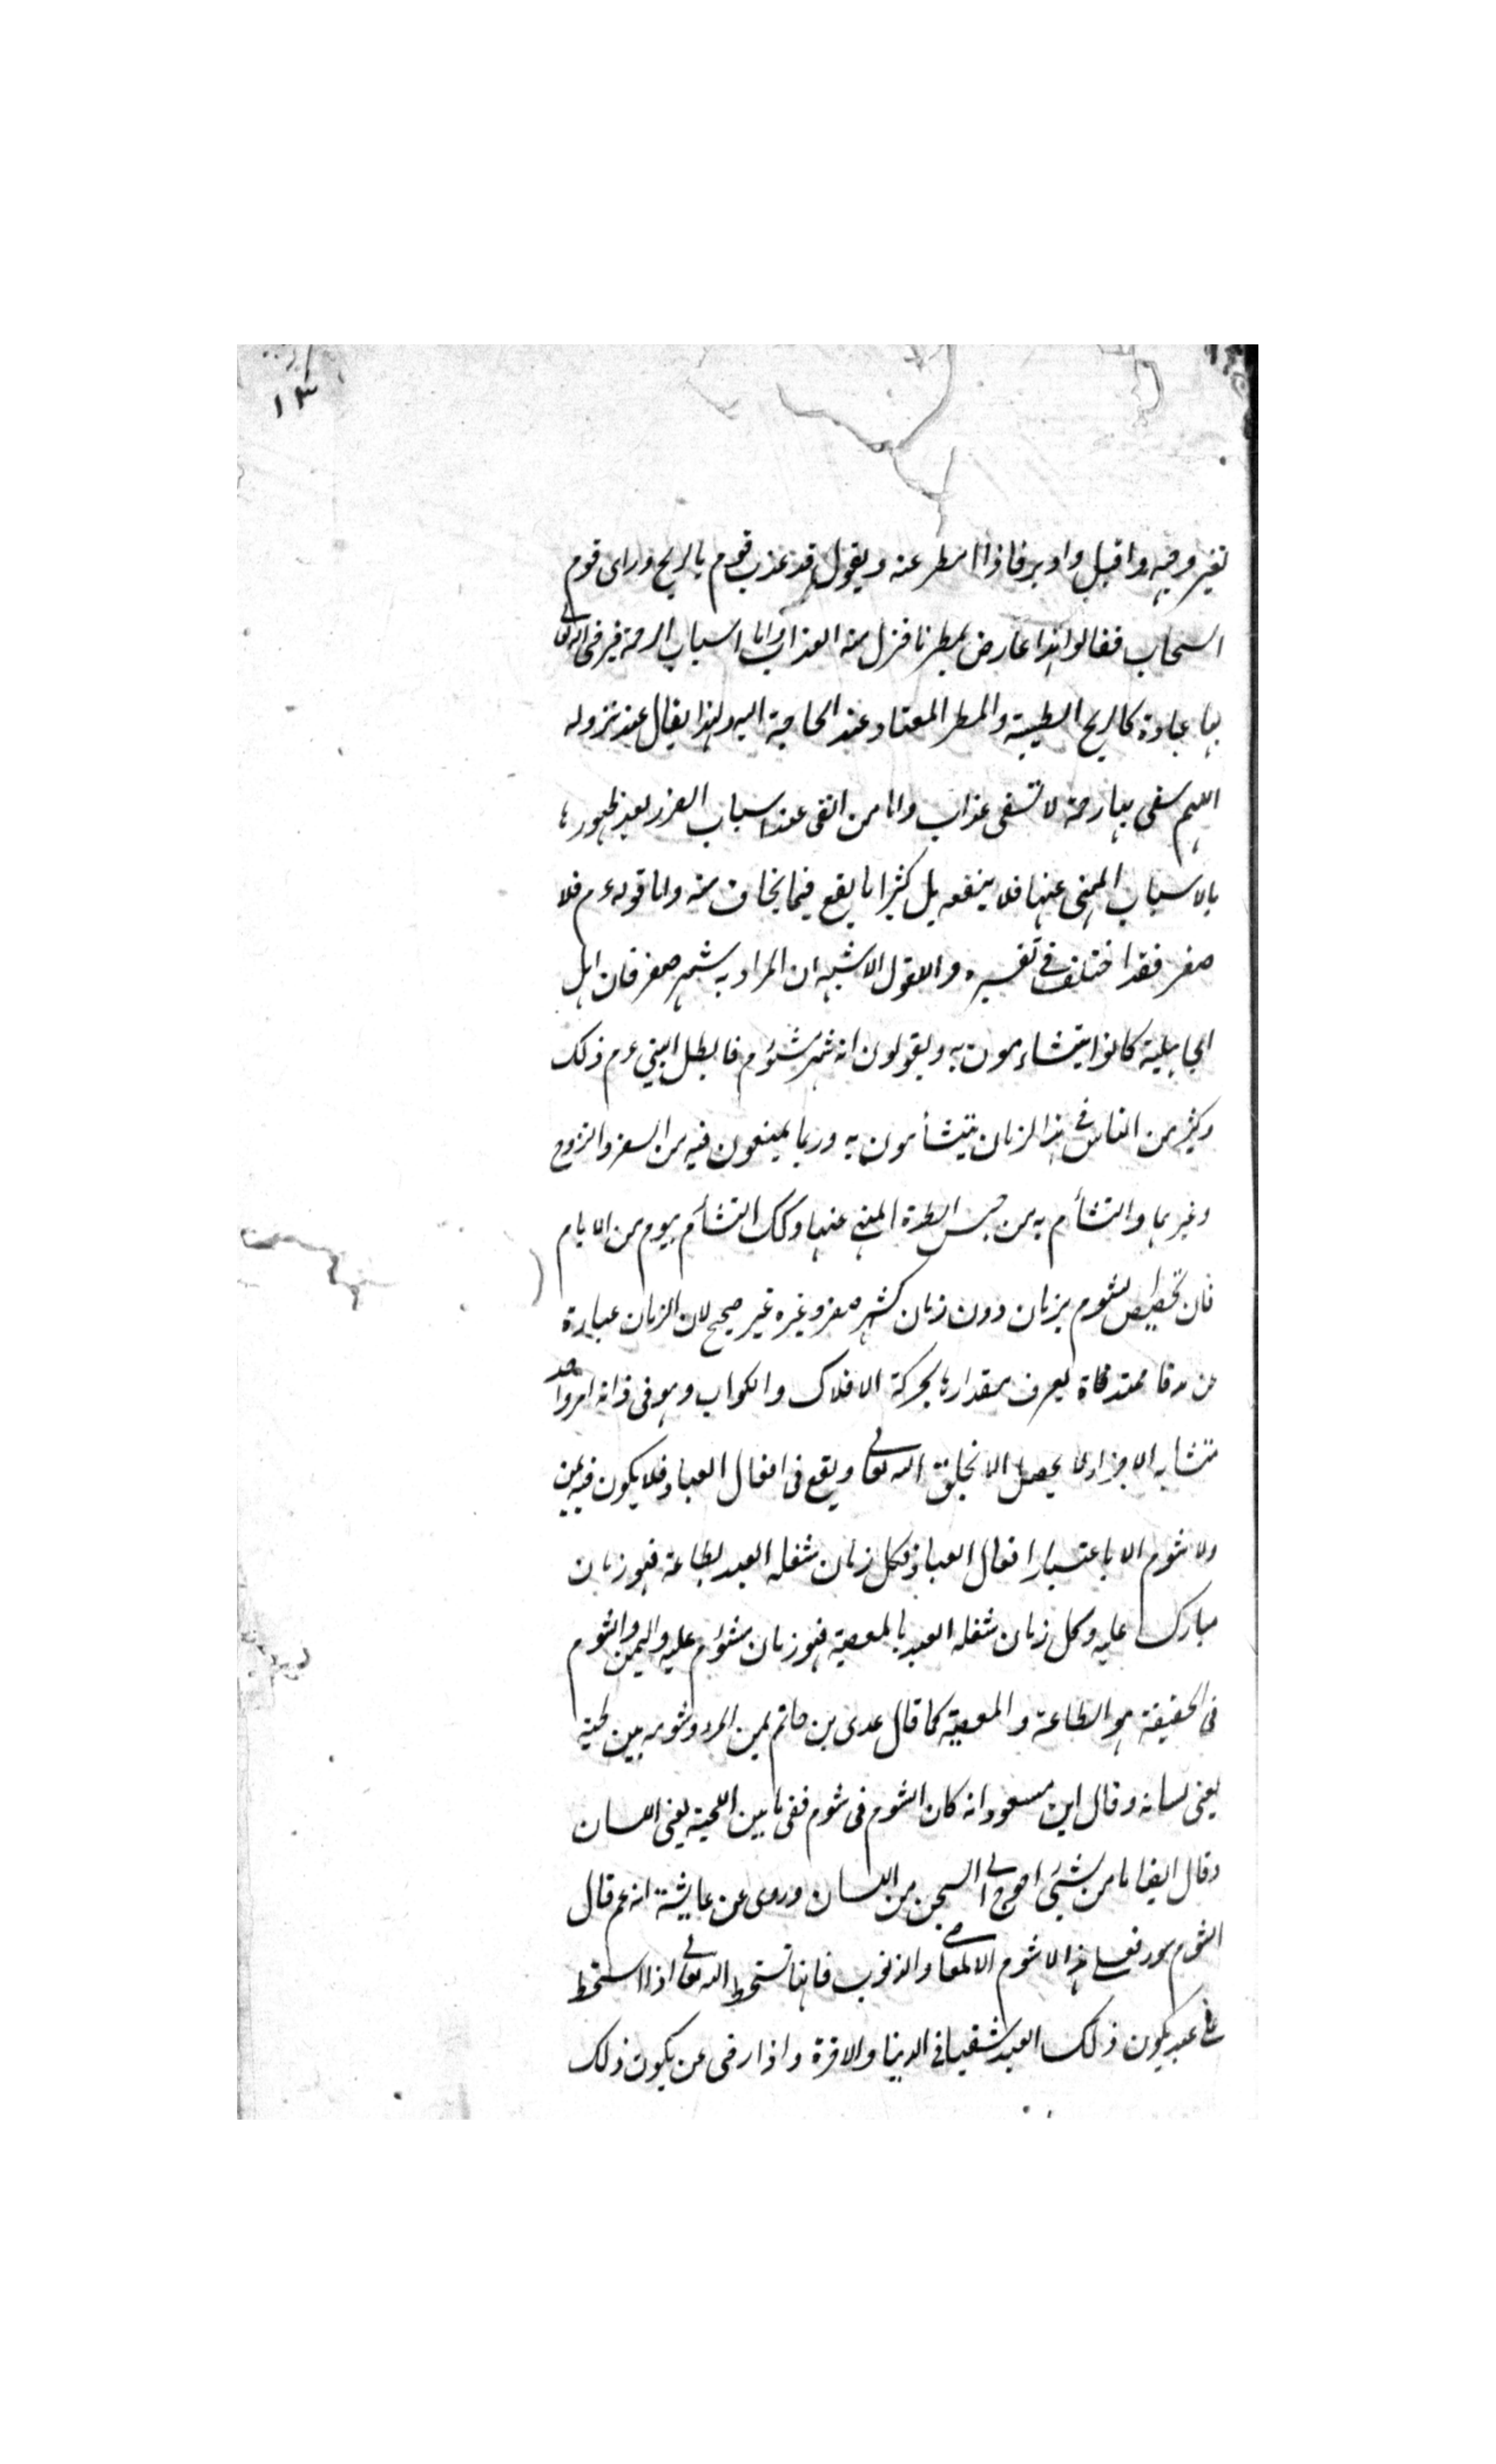 ١٣
تغير وجهه واقبل وادبر فاذا امطر عنه ويقول قد عذب قوم بالريح وراى قوم
السحاب فقالوا هذا عارض ممطرنا فنزل منه العذاب واما اسباب الرحمة فيرخى الله تعالى
بها عبادة كالريح الطيبة والمطر المعتاد عند الحاجة اليه ولهذا يقال عند نزوله
اللهم سقى بها رحمة لا تسقى عذاب واما من اتقى عند اسباب الضرر بعد ظهورها
بالاسباب المنهى عنها فلا ينفعه بل كثيرا ما يقع فيما يخاف منه واما قوله عم فلا
صفر فقد اختلف فى تفسيره والقول الاشبه ان المراد به شهر صفر فان اهل
الجاهلية كانوا يتشاءمون به ويقولون انه شهر مشئوم فابطل النبى عم ذلك
وكثير من الناس فى هذا الزمان يتشأمون به وربما يمنعون فيه من السفر والتزوج
وغيرهما والتشأم به من جنس الطيرة المنهى عنها وكذلك التشأم بيوم من الايام
فان تخصيص الشوم بزمان دون زمان كشهر صفر وغيره غير صحيح لان الزمان عبارة
عن مدة ممتدة يعرف مقدارها بحركة الافلاك والكواب وهو فى ذاته امر واحد
متشابه الاجزاء لا يحصل الا بخلق الله تعالى ويقع فى افعال العباد فلا يكون فيه يمن
ولا شوم الا باعتبار افعال العباد فكل زمان شغله العبد بطاعة فهو زمان
مبارك عليه وكل زمان شغله العبد بالمعصية فهو زمان مشؤم عليه واليمن والشوم
فى الحقيقة هو الطاعة والمعصية كما قال عدى بن حاتم يمن المرء وشومه بين لحيته
يعنى لسانه وقال ابن مسعود انه كان الشوم فى شوم ففى ما بين اللحية يعنى اللسان
وقال ايضا ما من شئى احوج الى السجن من اللسان وروى عن عايشة انه عم قال
الشوم سوء هذا لا شوم الا المعاصى والذنوب فانها تسخط الله تعالى اذا اسخط
على عبد يكون ذلك العبد شقيا فى الدنيا والاخرة واذا رضى عن يكون ذلك